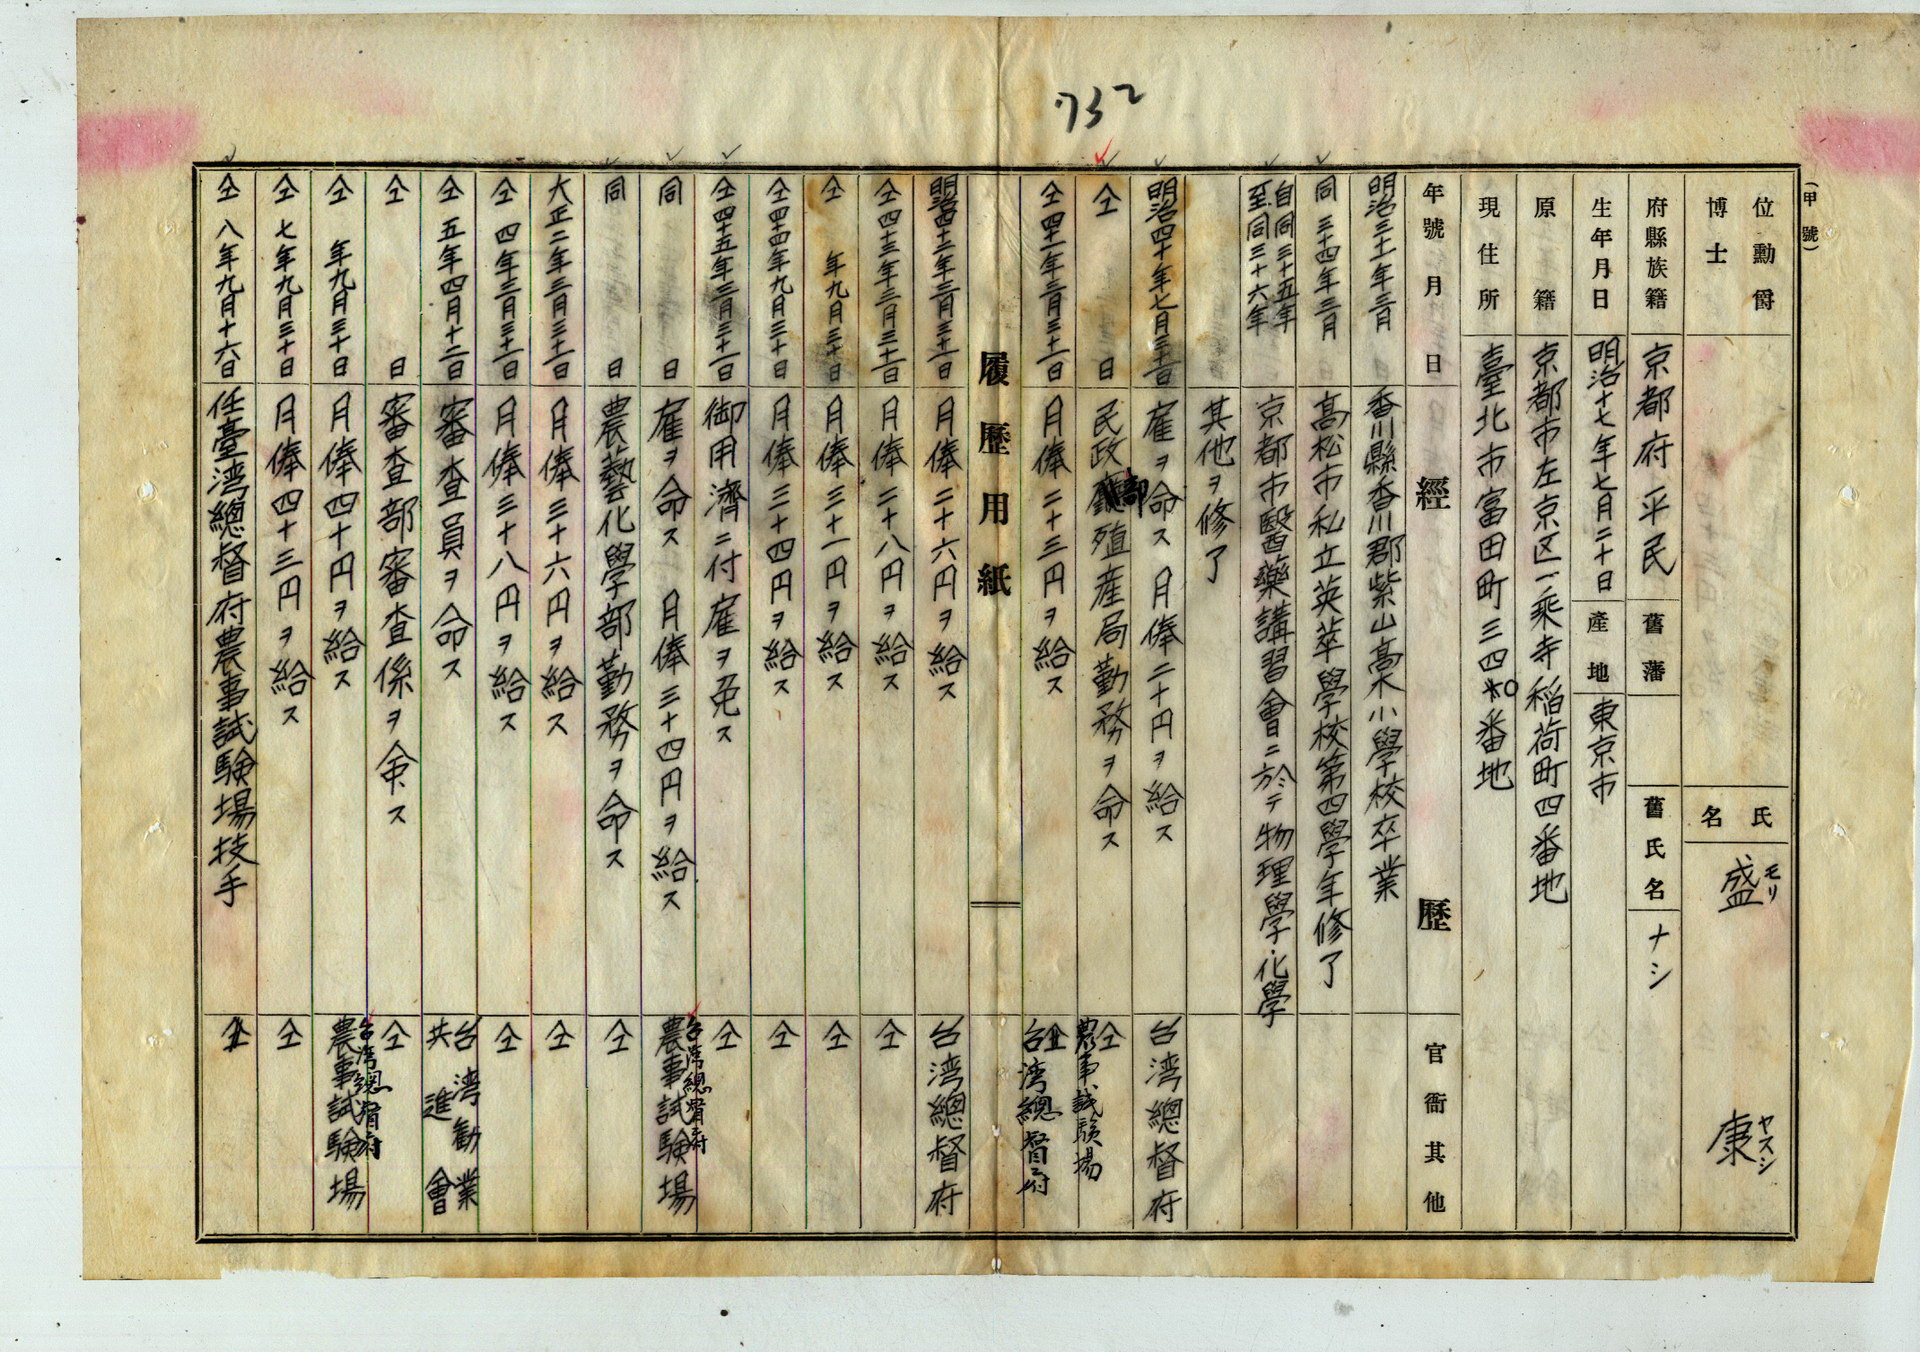 732
(甲號)
位勳爵
博士
氏名
盛 康
モリ ヤスシ
府縣族籍 京都府平民 舊藩 舊氏名 ナシ
生年月日 明治十七年七月二十日 產地 東京市
原籍 京都市左京区一乘寺稲荷町四番地
現住所 臺北市富田町三四番地
年號月日 經歷 官衙其他
明治三十一年三月 香川縣香川郡紫山高小學校卒業
同三十四年三月 高松市私立英華學校第四學年修了
自同三十五年 至同三十六年 京都市醫藥講習會ニ於テ物理學、化學
其他ヲ修了
明治四十年七月三十一日 雇ヲ命ス 月俸二十円ヲ給ス 台湾總督府
仝 日 民政部殖産局勤務ヲ命ス 仝 農事試験場
仝四十一年三月三十一日 月俸二十三円ヲ給ス 仝 台湾總督府
履歷用紙
明治四十二年三月三十一日 月俸二十六円ヲ給ス 台湾總督府
仝四十三年三月三十一日 月俸二十八円ヲ給ス 仝
仝 年九月三十日 月俸三十一円ヲ給ス 仝
仝四十四年九月三十日 月俸三十四円ヲ給ス 仝
仝四十五年三月三十一日 御用濟ニ付雇ヲ免ス 仝
同 日 雇ヲ命ス 月俸三十四円ヲ給ス 台湾總督府農事試験場
同 日 農藝化學部勤務ヲ命ス 仝
大正二年三月三十一日 月俸三十六円ヲ給ス 仝
仝四年三月三十一日 月俸三十八円ヲ給ス 仝
仝五年四月十二日 審査員ヲ命ス 台湾勧業共進會
仝 日 審査部審査係ヲ命ス 仝
仝 年九月三十日 月俸四十円ヲ給ス 台湾總督府農事試験場
仝七年九月三十日 月俸四十三円ヲ給ス 仝
仝八年九月十六日 任臺湾總督府農事試験場技手 仝